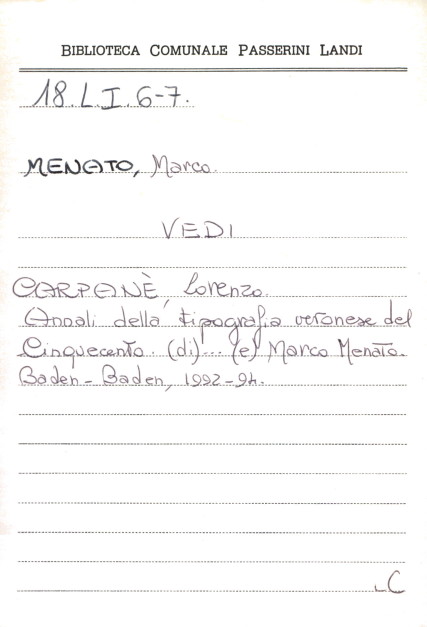 BIBLIOTECA COMUNALE PASSERINI LANDI
18.L.I.6-7.
MENATO, Marco.
VEDI
CARPANÈ, Lorenzo.
Annali della tipografia veronese del
Cinquecento. (di)... (e) Marco Menato.
Baden-Baden, 1992-94.
C